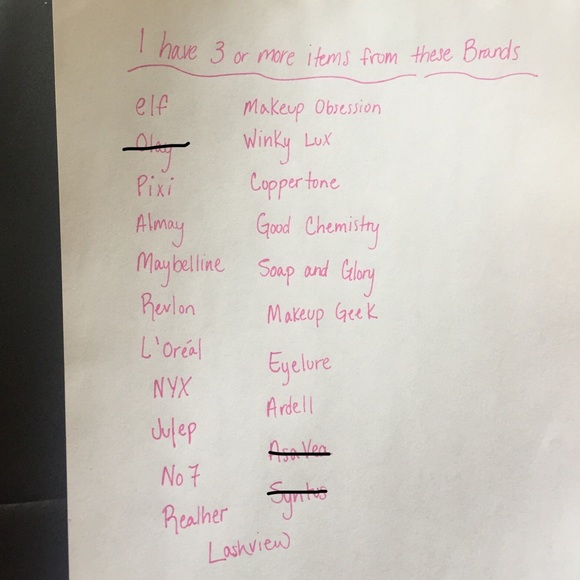 I have 3 or more items from these Brands
elf
Olay
Pixi
Almay
Maybelline
Revlon
L'Oréal
NYX
Julep
No7
Realher
Makeup Obsession
Winky Lux
Coppertone
Good Chemistry
Soap and Glory
Makeup Geek
Eyelure
Ardell
Lashview